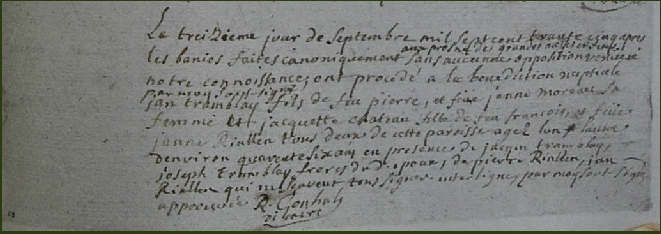 Le treizieme jour de Septembre mil sept cent trante cinq apres
les banies faites canoniquement aux prosnes des grandes messes sans aucunne opposition venue à
notre connoissance, ont procedé a la benediction nuptiale
par moy soussigné
jan tramblay fils de feu pierre, et feüe janne moreau Sa
femme et jacquette chateau fille de feu francois, et feüe
janne Riallen tous deux de cette paroisse agez lun et lautre
denviron quarente six ans en presence de jacque tramblay,
joseph tramblay freres du d. epoux, de pierre Riallen, jan
Riallen qui ne scavent tous signer interligne, par moy sousigné
approuvée R.